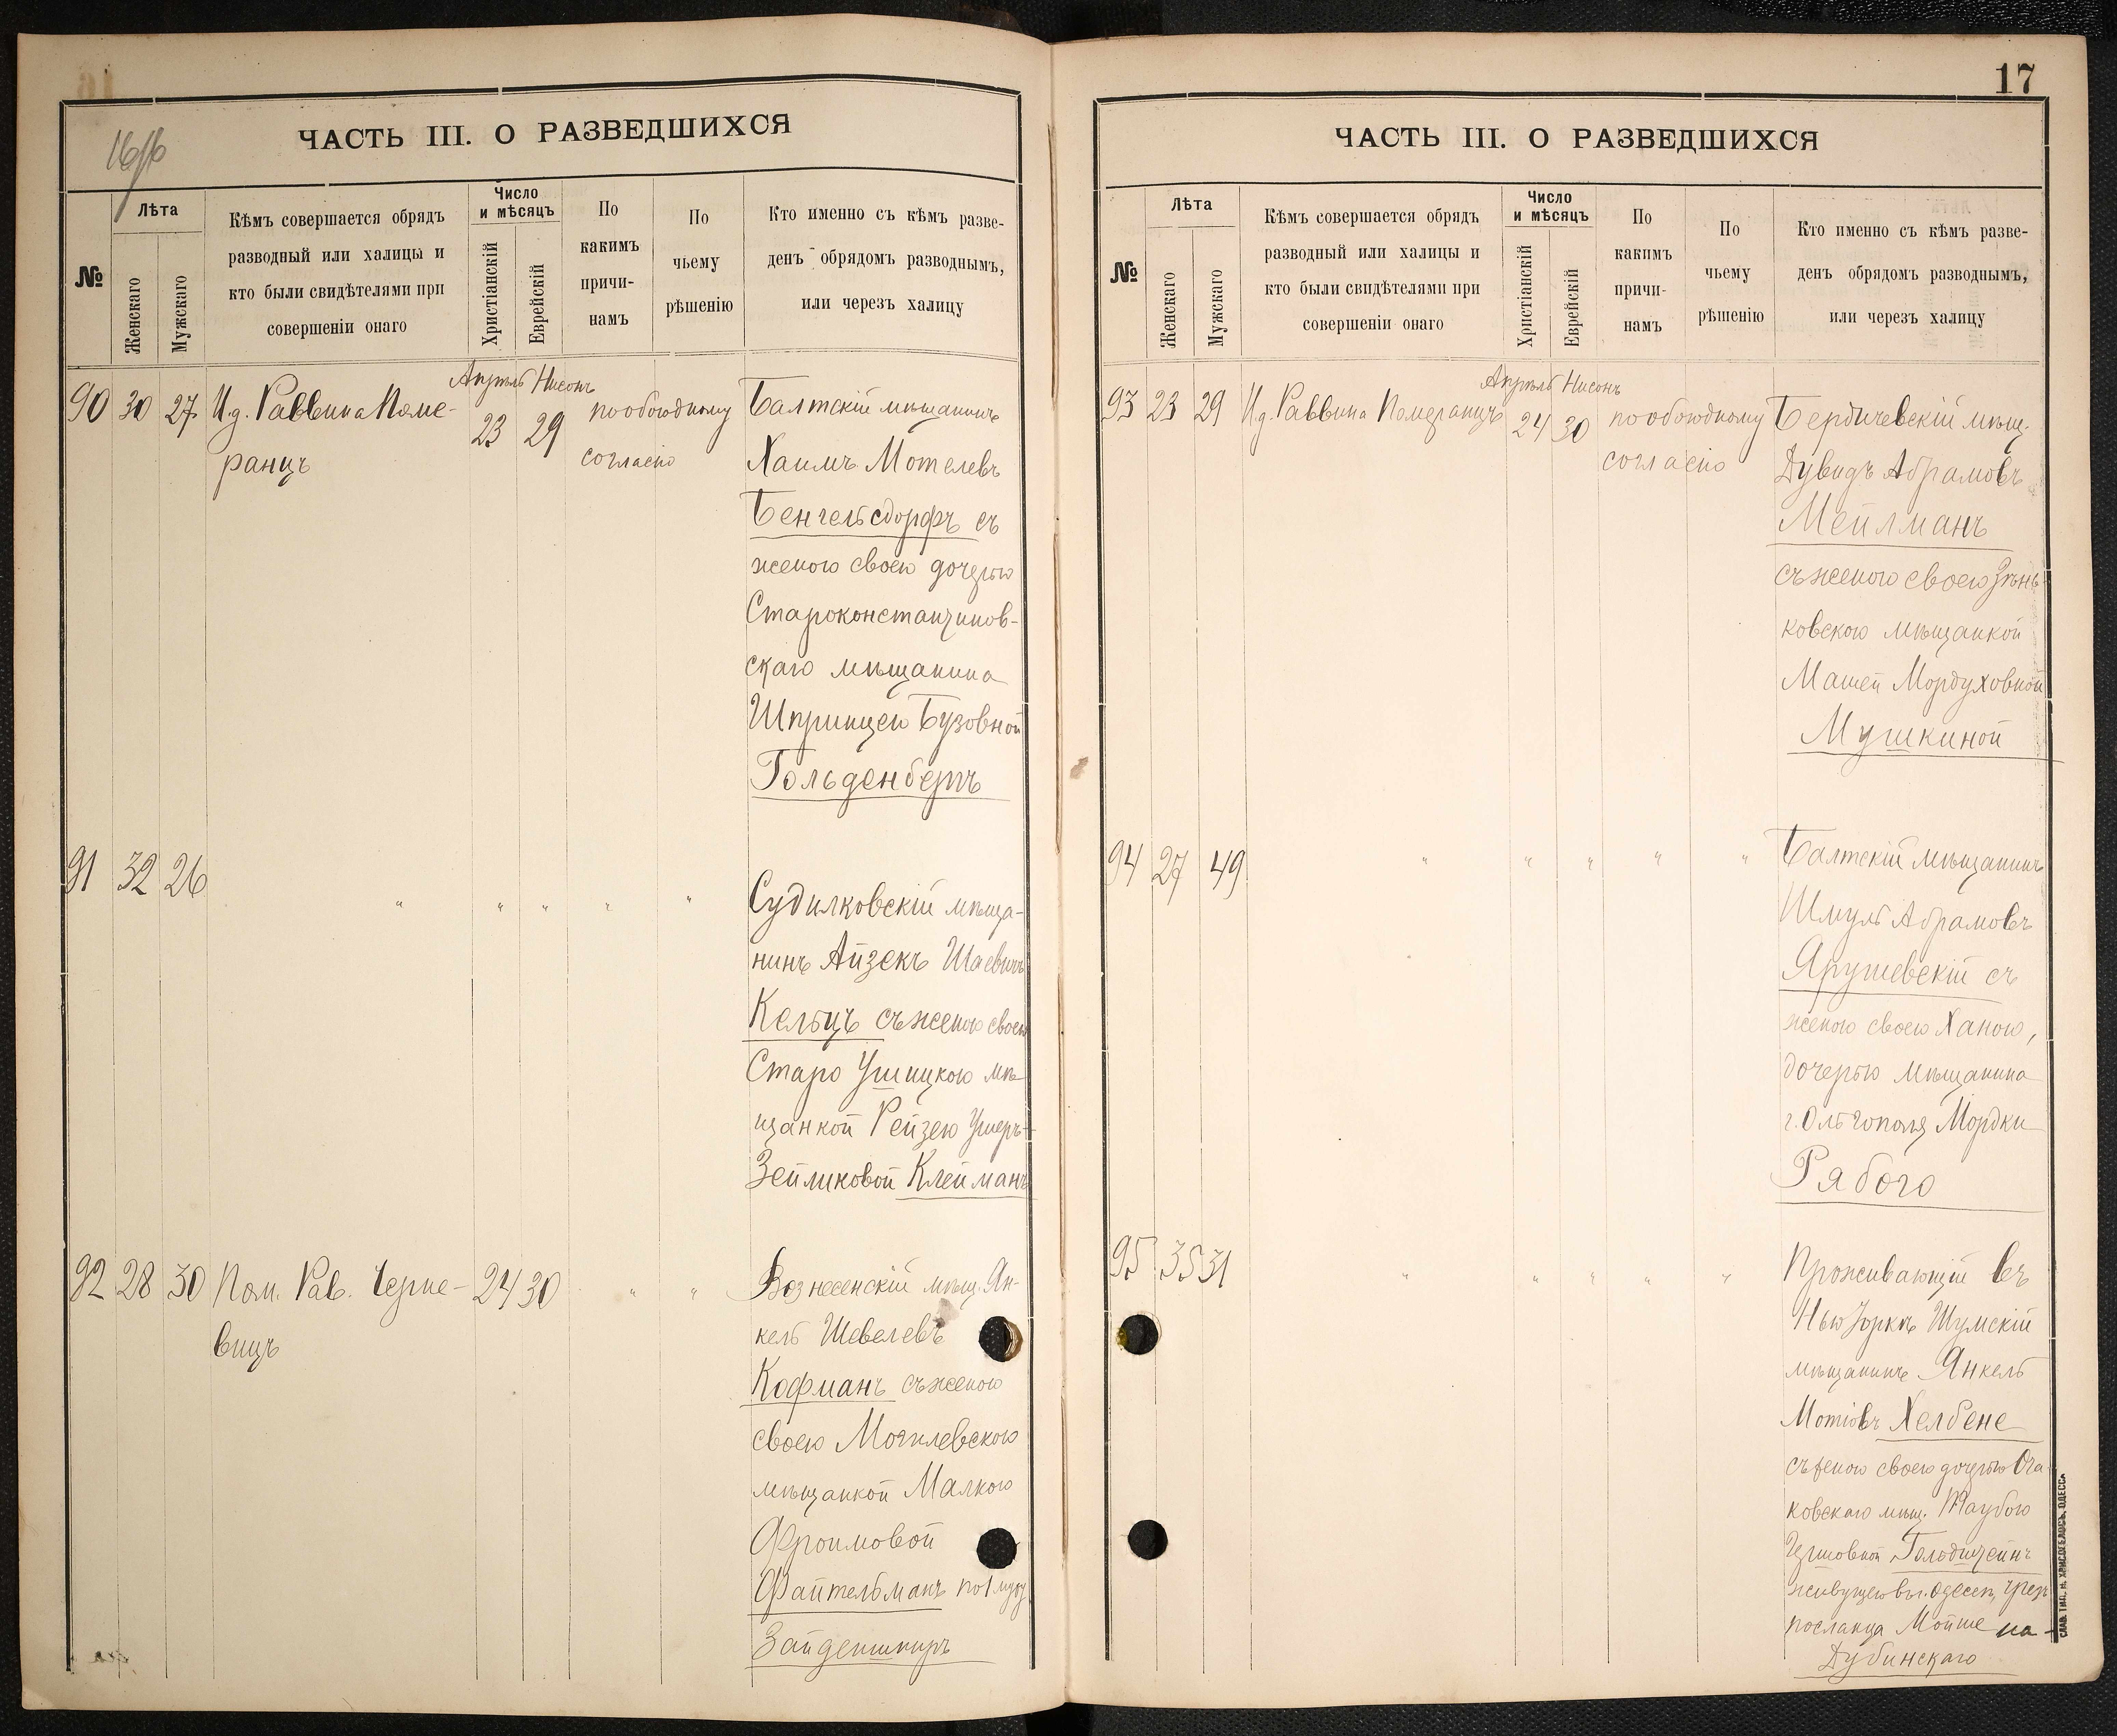 16
ЧАСТЬ III. О РАЗВЕДШИХСЯ
№
Лѣта
Женскаго
Мужскаго
Кѣмъ совершается обрядъ
разводный или халицы и
кто были свидѣтелями при
совершеніи онаго
Число
и мѣсяцъ
Христіанскій
Еврейскій
По
какимъ
причи-
намъ
По
чьему
рѣшенію
Кто именно съ кѣмъ разве-
денъ обрядомъ разводнымъ,
или черезъ халицу
Апрѣль Нисонъ
90 30 27 И д. Раввина Поме-
ранцъ
23 29
по обоюдному
согласію
Балтскій мѣщанинъ
Хаимъ Мотелевъ
Бенгельсдорфъ съ
женою своею дочерью
Староконстантинов-
скаго мѣщанина
Шпринцею Бузовной
Гольденбергъ
91 32 26 " " " " "
Судилковскій мѣща-
нинъ Айзекъ Шаевичъ
Кельцъ съ женою своею
Старо Ушицкою мѣ-
щанкой Рейзею Ушеръ-
Зейликовой Клейманъ
92 28 30 Пом. Рав. Черне-
вицъ
24 30 " "
Вознесенскій мѣщ. Ян-
кель Шевелевъ
Кофманъ съ женою
своею Могилевскою
мѣщанкой Малкою
Фроимовой
Файтельманъ по 1 мужу
Зайденшниръ
17
ЧАСТЬ III. О РАЗВЕДШИХСЯ
№
Лѣта
Женскаго
Мужскаго
Кѣмъ совершается обрядъ
разводный или халицы и
кто были свидѣтелями при
совершеніи онаго
Число
и мѣсяцъ
Христіанскій
Еврейскій
По
какимъ
причи-
намъ
По
чьему
рѣшенію
Кто именно съ кѣмъ разве-
денъ обрядомъ разводнымъ,
или черезъ халицу
Апрѣль Нисонъ
93 23 29 И д. Раввина Померанцъ
24 30
по обоюдному
согласію
Бердичевскій мѣщ.
Дувидъ Абрамовъ
Мейлманъ
съ женою своею Зѣнь-
ковскою мѣщанкой
Машей Мордуховной
Мушкиной
94 27 49 " " " " "
Балтскій мѣщанинъ
Шмуль Абрамовъ
Ярушевскій съ
женою своею Ханою,
дочерью мѣщанина
г. Ольгополя Мордки
Рябого
95 35 31 " " " " "
Проживающій въ
Нью Іоркѣ Шумскій
мѣщанинъ Янкель
Мотіовъ Хелбене
съ женою своею дочерью Оча-
ковскаго мѣщ. Таубою
Гершовной Голодштейнъ
живущею въ г. Одессѣ, чрезъ
посланца Мойше на-
Дубинскаго
СЛАВ. ТИП. Н. ХРИСОГЕЛОСЪ, ОДЕССА